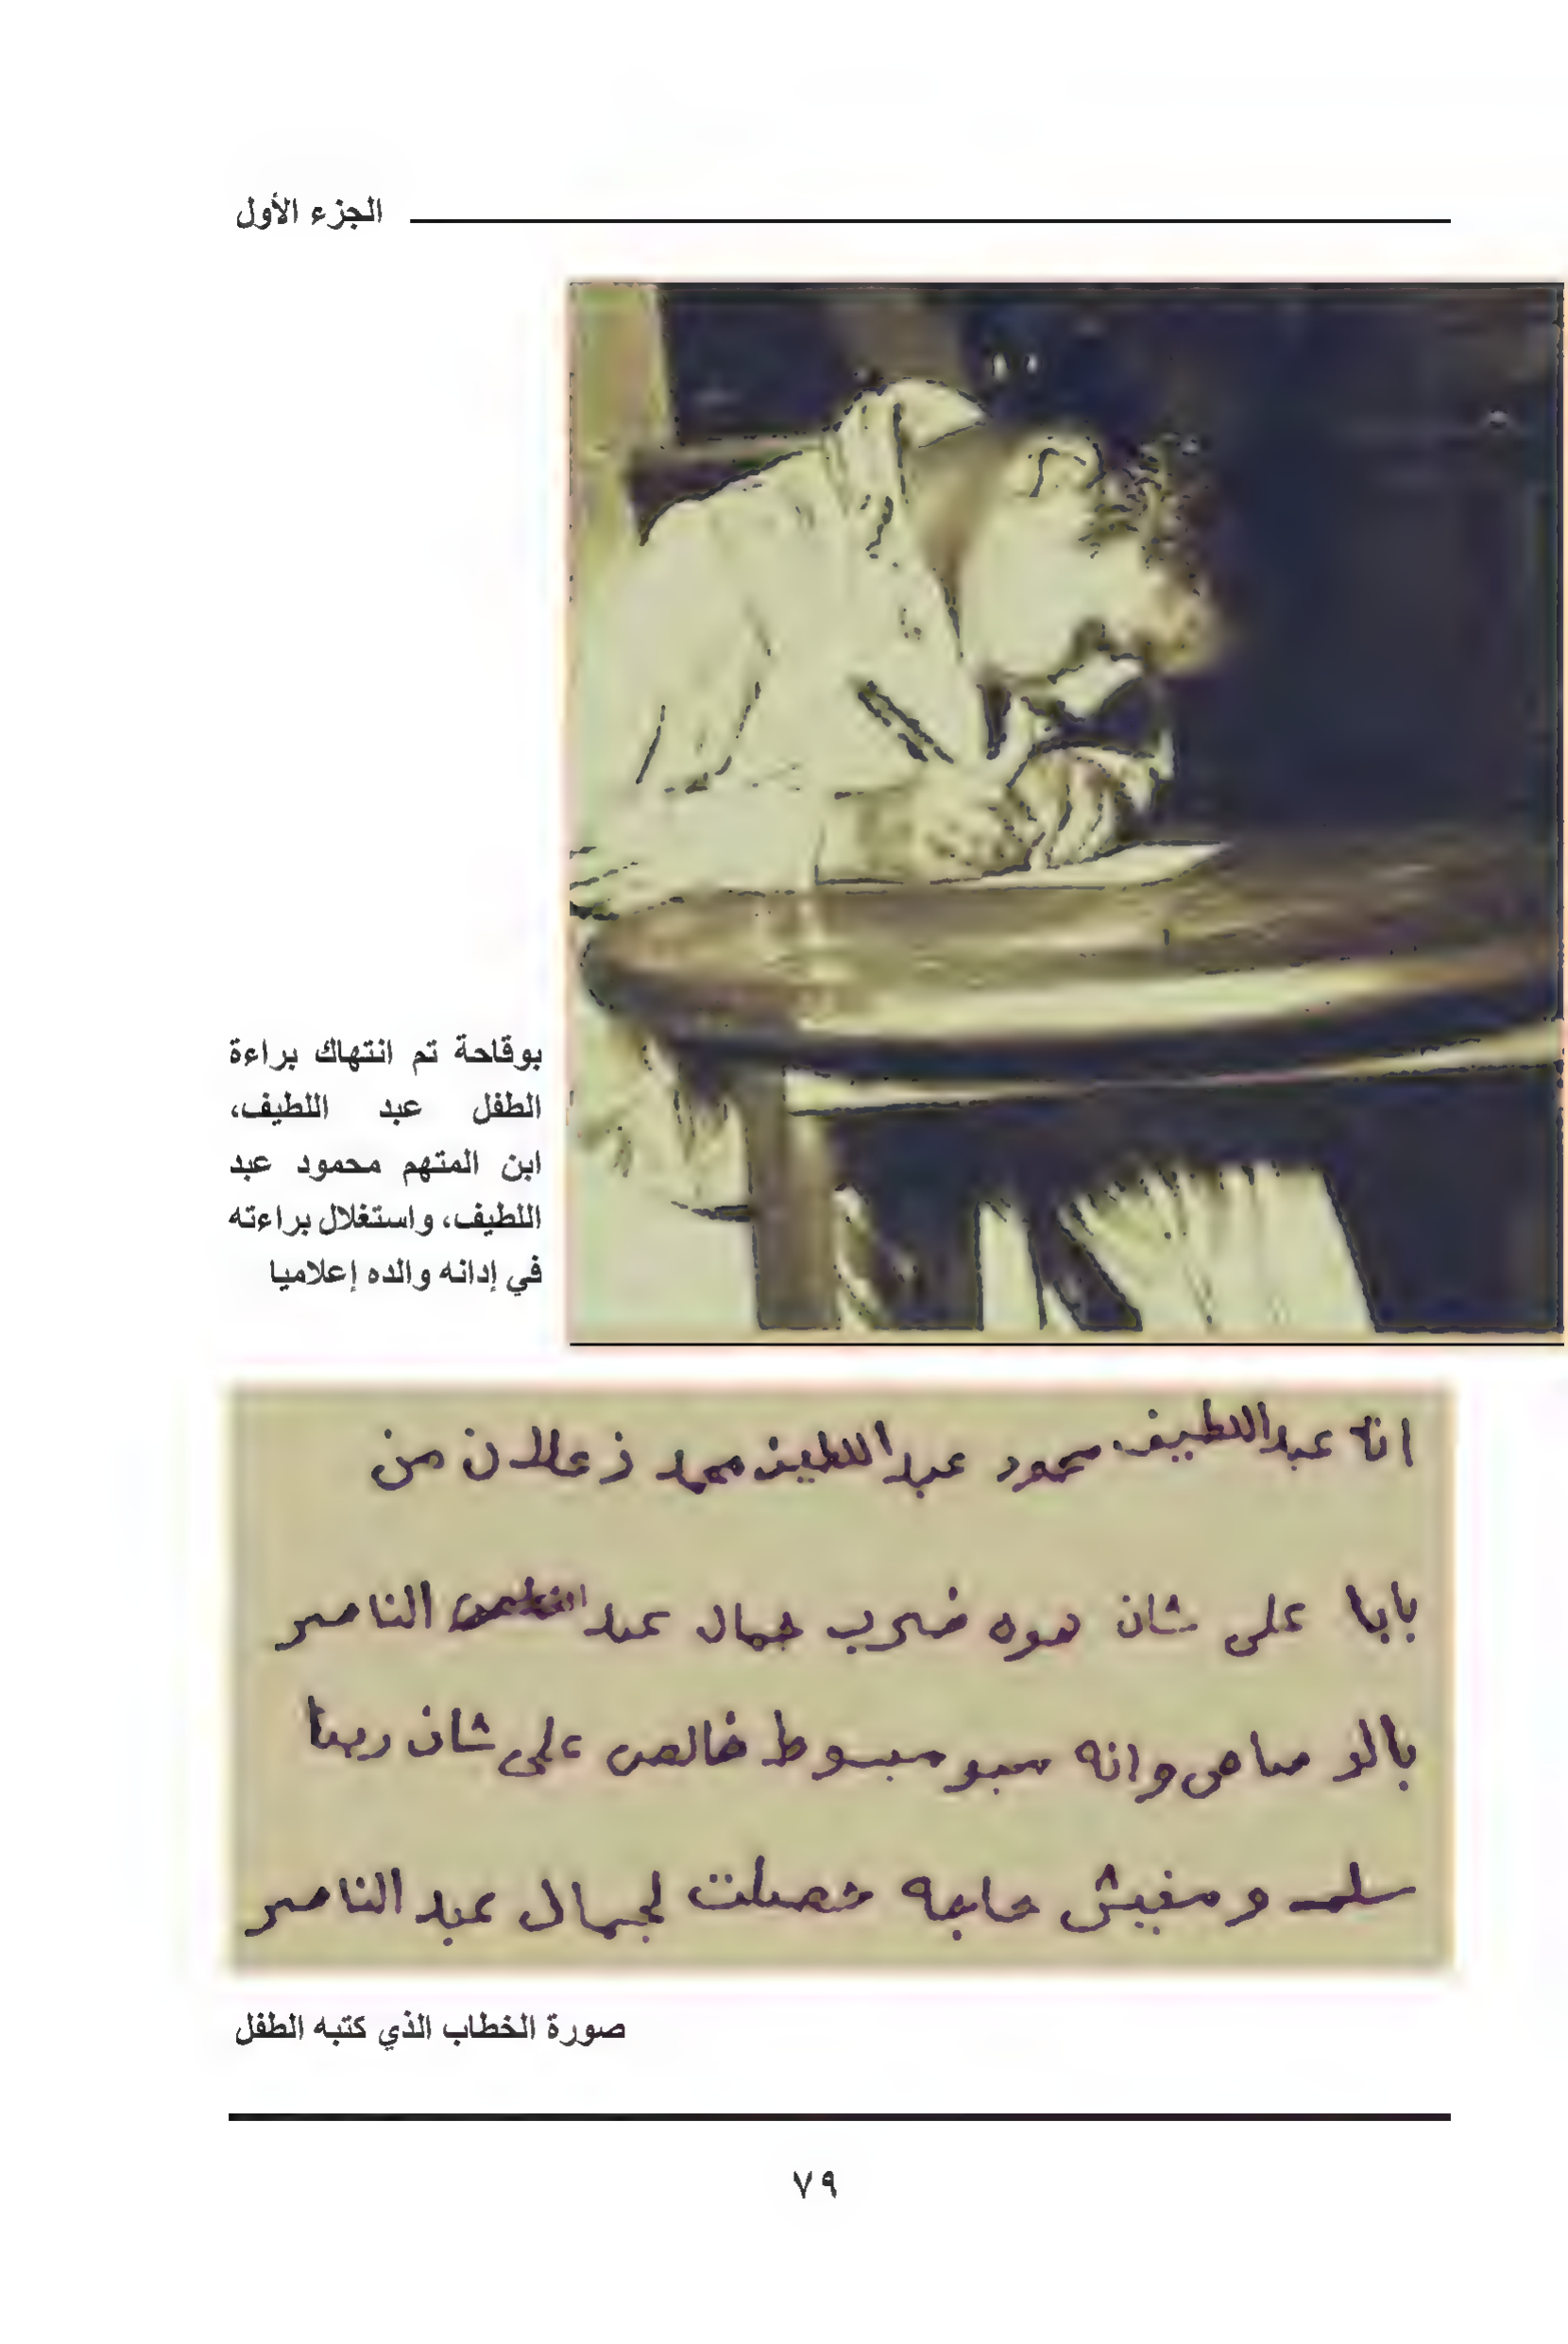 الجزء الأول
بوقاحة تم انتهاك براءة
الطفل عبد اللطيف،
ابن المتهم محمود عبد
اللطيف، واستغلال براءته
في إدانه والده إعلاميا
انه عبد اللطيف محمود عبد اللطيف محمد زعلان من
بابا على شان هوه ضرب جمال عبد الناصر
بالرصاص وانه مبسوط خالص على شان ربنا
سلمه ومفيش حاجه حصلت لجمال عبد الناصر
صورة الخطاب الذي كتبه الطفل
٧٩